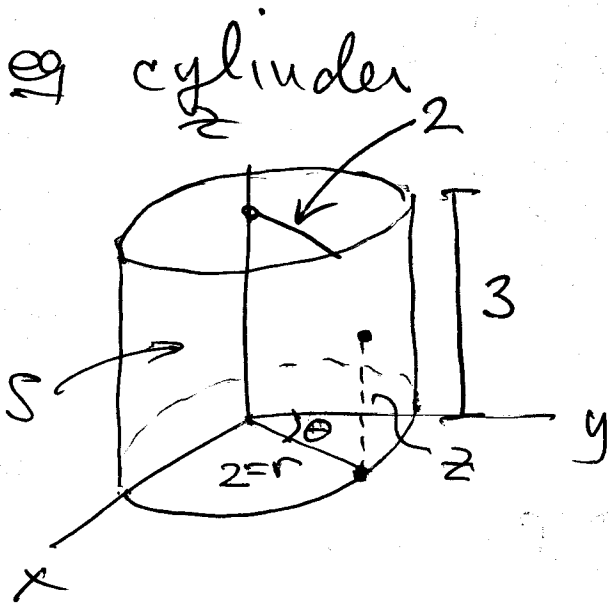 eg cylinder
z
2
3
S
θ
y
2=r
z
x